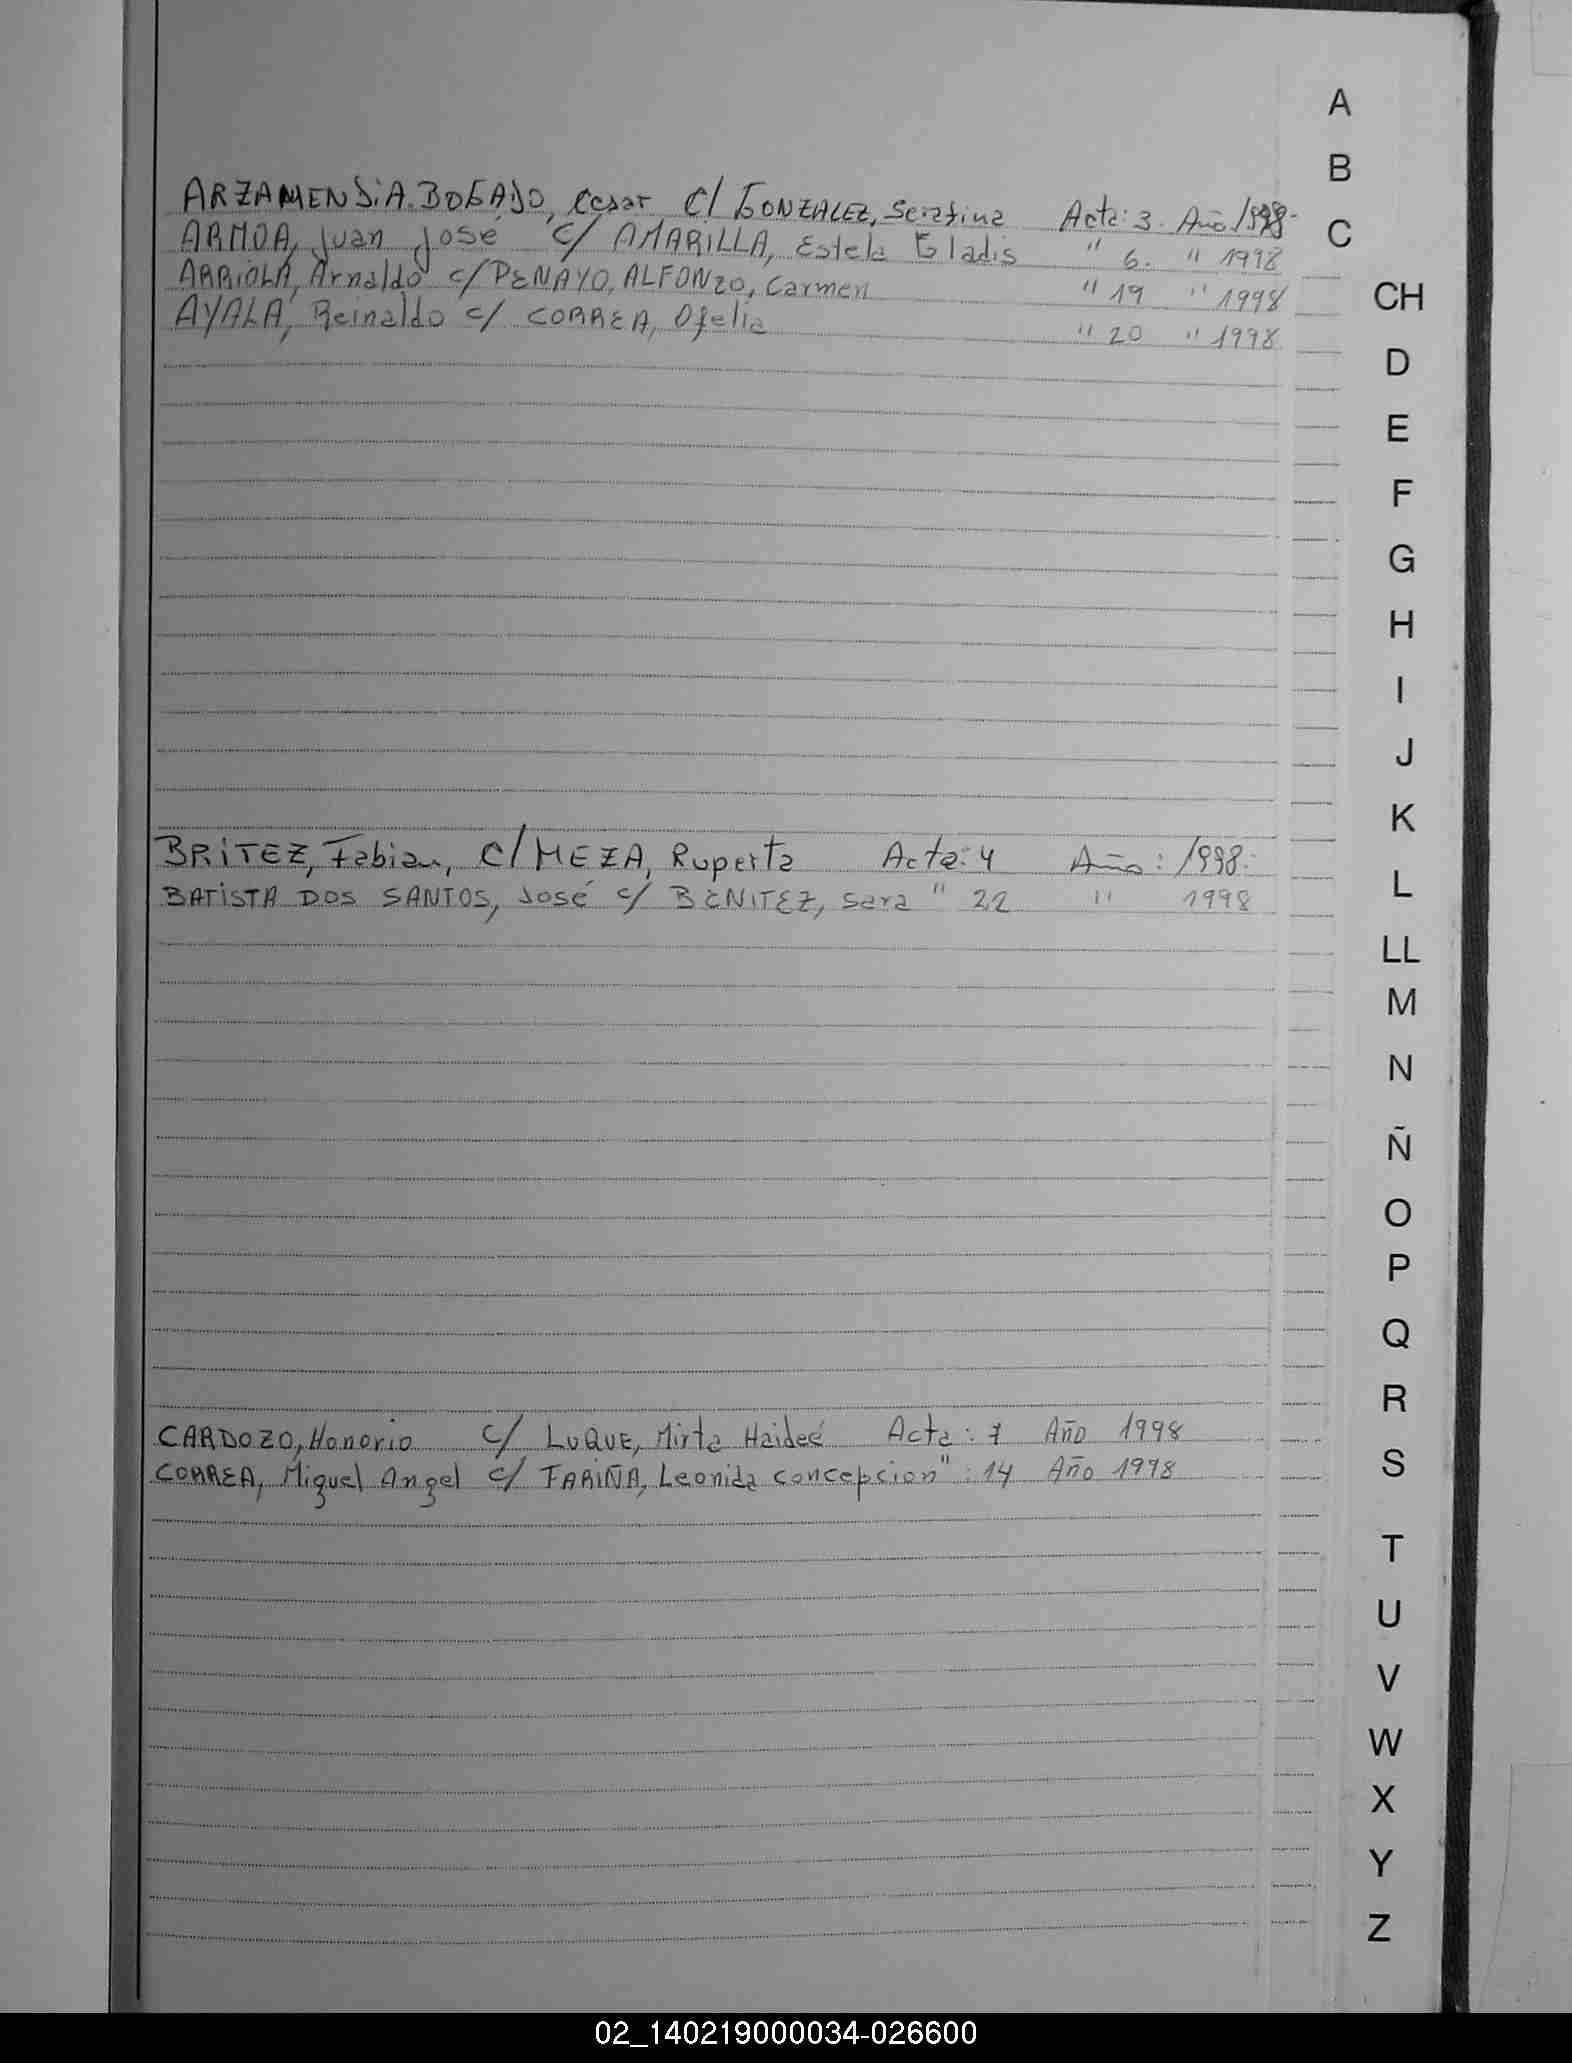 ARZAMENDiA BOGADO, Cesar C/ GONZALEZ, Serafina Acta: 3. Año 1998.
ARMOA, Juan José c/ AMARILLA, Estela Gladis " 6. " 1998
ARRiOLA, Arnaldo c/ PENAYO, ALFONZO, Carmen " 19 " 1998
AYALA, Reinaldo c/ CORREA, Ofelia " 20 " 1998
BRiTEZ, Fabian, C/ MEZA, Ruperta Acta: 4 Año: 1998.
BATiSTA DOS SANTOS, José c/ BENITEZ, Sara " 22 " 1998
CARDOZO, Honorio c/ LUQUE, Mirta Haideé Acta: 7 Año 1998
CORREA, Miguel Angel c/ FARiÑA, Leonida concepcion ": 14 Año 1998
A
B
C
CH
D
E
F
G
H
I
J
K
L
LL
M
N
Ñ
O
P
Q
R
S
T
U
V
W
X
Y
Z
02_140219000034-026600